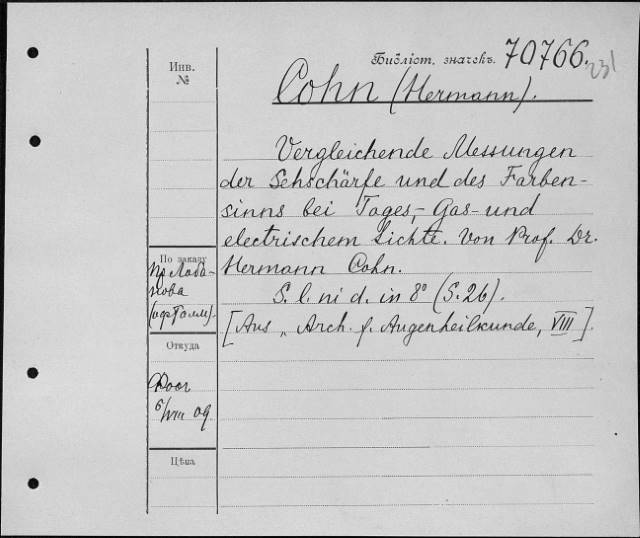 Библіот. значекъ. 70766.
231
Инв.
№
Cohn (Hermann).
Vergleichende Messungen
der Sehschärfe und des Farben-
sinns bei Tages,- Gas- und
electrischem Lichte. Von Prof. Dr.
Hermann Cohn.
S. l. ni d. in 8° (S. 26).
[Aus „ Arch. f. Augenheilkunde, VIII].
По заказу
пр Лоба-
нова
Откуда
6/VIII 09
Цѣна